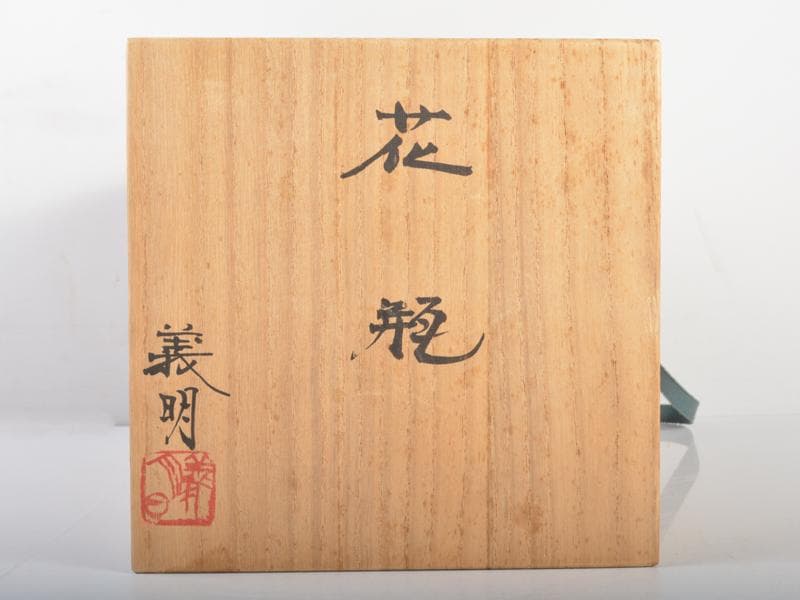 花瓶
義明